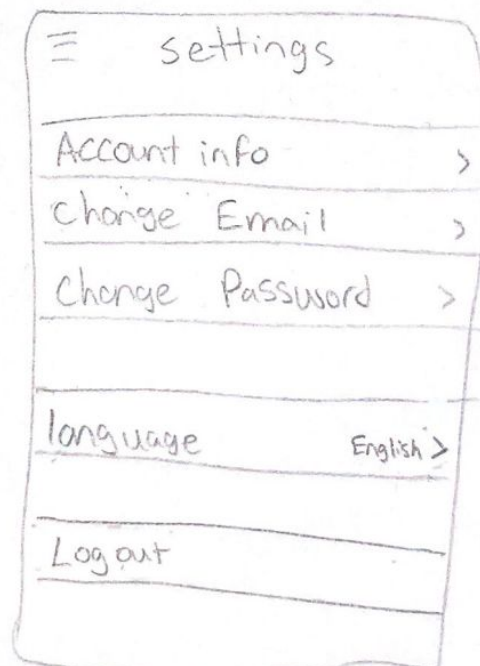 settings
Account info >
Change Email >
Change Password >
language English >
Log out